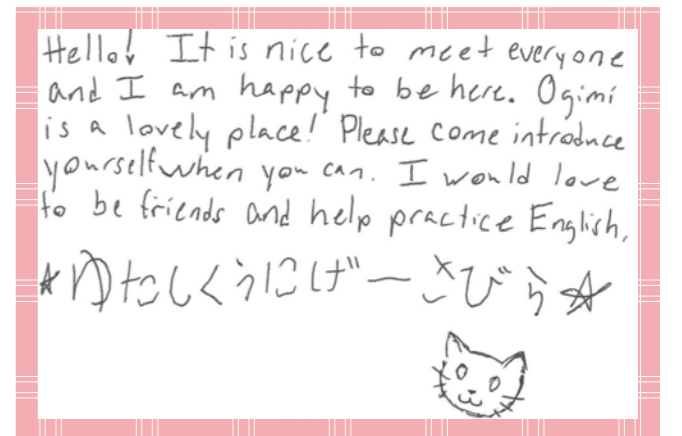 Hello! It is nice to meet everyone
and I am happy to be here. Ogimi
is a lovely place! Please come introduce
yourself when you can. I would love
to be friends and help practice English.
★ゆたしくうにげーさびら☆